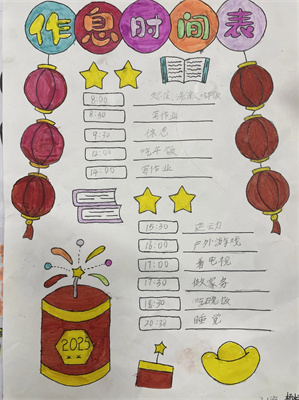 作息时间表
8:00 起床、洗漱、吃早饭
8:30 写作业
9:30 休息
12:00 吃午饭
14:00 写作业
15:30 运动
16:00 户外游戏
17:00 看电视
17:30 做家务
18:30 吃晚饭
20:30 睡觉
2025